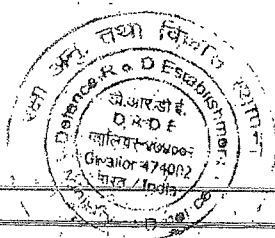 रक्षा अनु. तथा विकास स्थापना
Defence R & D Establishment
डी.आर.डी.ई.
D R D E
ग्वालियर-४७४००२
Gwalior-474002
भारत / India